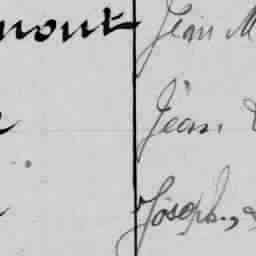 mont Jean M
Jean.
Joseph,